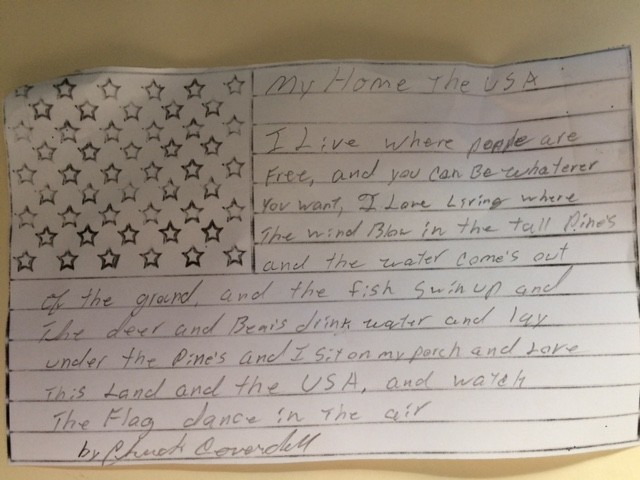 My Home The USA
I Live where people are
Free, and you can Be whaterer
You want, I Love Living where
The wind Blow in the tall Pine's
and the water come's out
of the ground, and the fish swin up and
The deer and Bears drink water and lay
under the Pine's and I sit on my porch and Love
This Land and the USA, and watch
The Flag dance in The air
by Chuck Coverdell